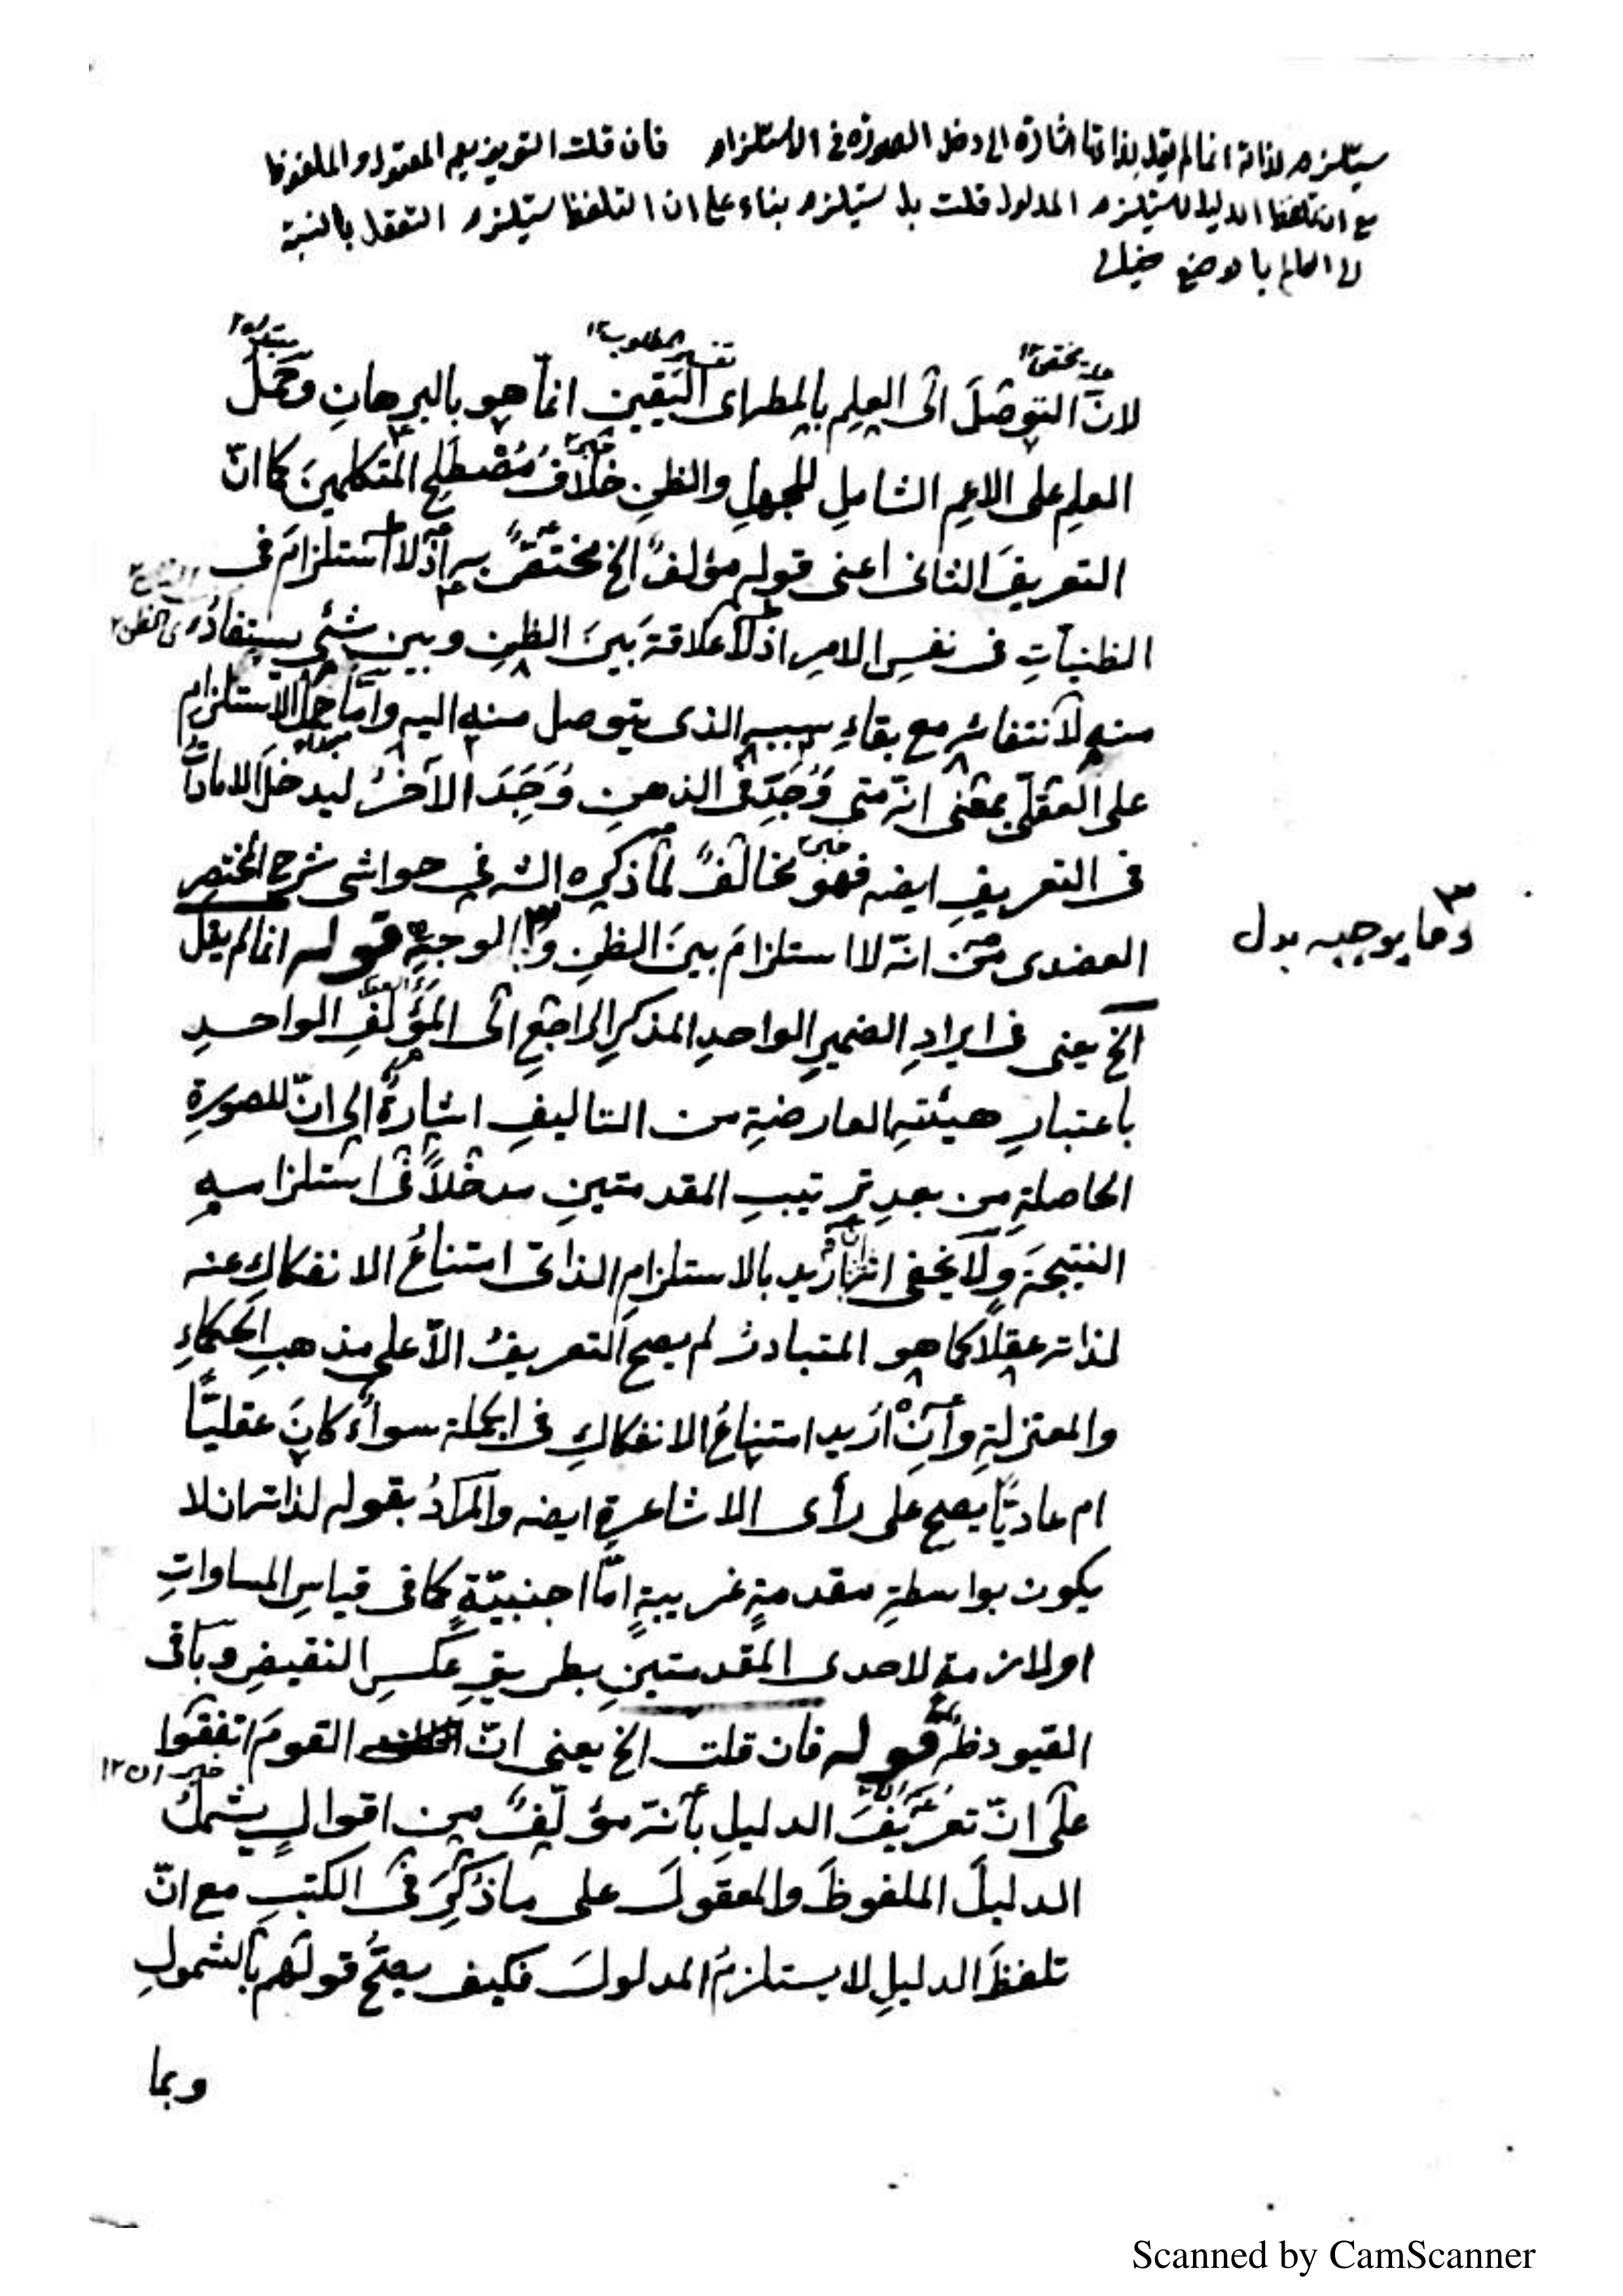 يستلزم لذاته انما لم يقل بذاتها اشارة الى دخل الصورة في الاستلزام فان قلت التعريف يعم المعقول والملفوظ
مع ان تلفظ الدليل لا يستلزم المدلول قلت بل يستلزم بناء على ان التلفظ يستلزم التعقل بالنسبة
الى العالم بالوضع خيالى
علة مختص ١٢
تفسير المطلوب ١٢
مبتدا ١٢
لانّ التوصّلَ الى العِلمِ بالمط اى اليَقينِ انمّا هو بالبرهانِ وحَمَلُ
العلمِ على الاعمِ الشاملِ للجهلِ والظنِ خلافُ مُصْطَلَحِ المتكلمينَ كما انّ
التعريفَ الثانى اعنى قوله مؤلفٌ الخ مختصٌّ به اذ لا استلزامَ فى
الظنياتِ فى نفسِ الامرِ اذ لا علاقةَ بَينَ الظنِ وبين شئ يستفادُ
منه لانتفائه مع بقاءِ سببه الذى يتوصل منه اليه وامّا حملُ الاستلزامِ
على العقلىّ بمعْنى انّه متى وُجِدَ فى الذهنِ وُجِدَ الآخرُ ليدخلَ الامارات
فى التعريفِ ايضه فهو مخالفٌ لما ذكره الشه فى حواشى شرح المختصر
العضدى من انّه لا استلزامَ بينَ الظنِ وا لوجبه قوله انما لم يقل
٣ وما يوجبه بدل
الخ يعنى فى ايرادِ الضميرِ الواحدِ المذكرِ الراجعِ الى المؤلَّفِ الواحدِ
باعتبارِ هيئتهِ العارضةِ من التاليفِ اشارةٌ الى انّ للصورةِ
الحاصلةِ من بعدِ ترتيبِ المقدمتينِ مدخلاً فى استلزامهِ
النتيجةَ ولا يخفى انه ان اُريد بالاستلزامِ الذاتى امتناعُ الانفكاكِ عنه
لذاته عقلاً كما هو المتبادرُ لم يصح التعريفُ الاّ على مذهبِ الحكماءِ
والمعتزلةِ وانْ اُريد امتناعُ الانفكاكِ فى الجملة سواءٌ كانَ عقليًّا
ام عاديًّا يصح على رأى الاشاعرةِ ايضه والمرادُ بقوله لذاته ان لا
يكون بواسطةِ مقدمةٍ غريبةٍ امّا اجنبيّةٍ كما فى قياسِ المساواتِ
او لازمةٍ لاحدى المقدمتينِ بطريقِ عكسِ النقيضِ وباقى
القيود ظه قوله فان قلت الخ يعنى انّ القومَ اتفقوا
خبر ان ١٢
على انّ تعريفَ الدليلِ بأنّه مؤلّفٌ من اقوالٍ يشملُ
الدليلَ الملفوظَ والمعقولَ على ما ذُكِرَ فى الكتبِ مع انّ
تلفظَ الدليلِ لا يستلزمُ المدلولَ فكيف يصحُّ قولهم بالشمولِ
وبما
Scanned by CamScanner